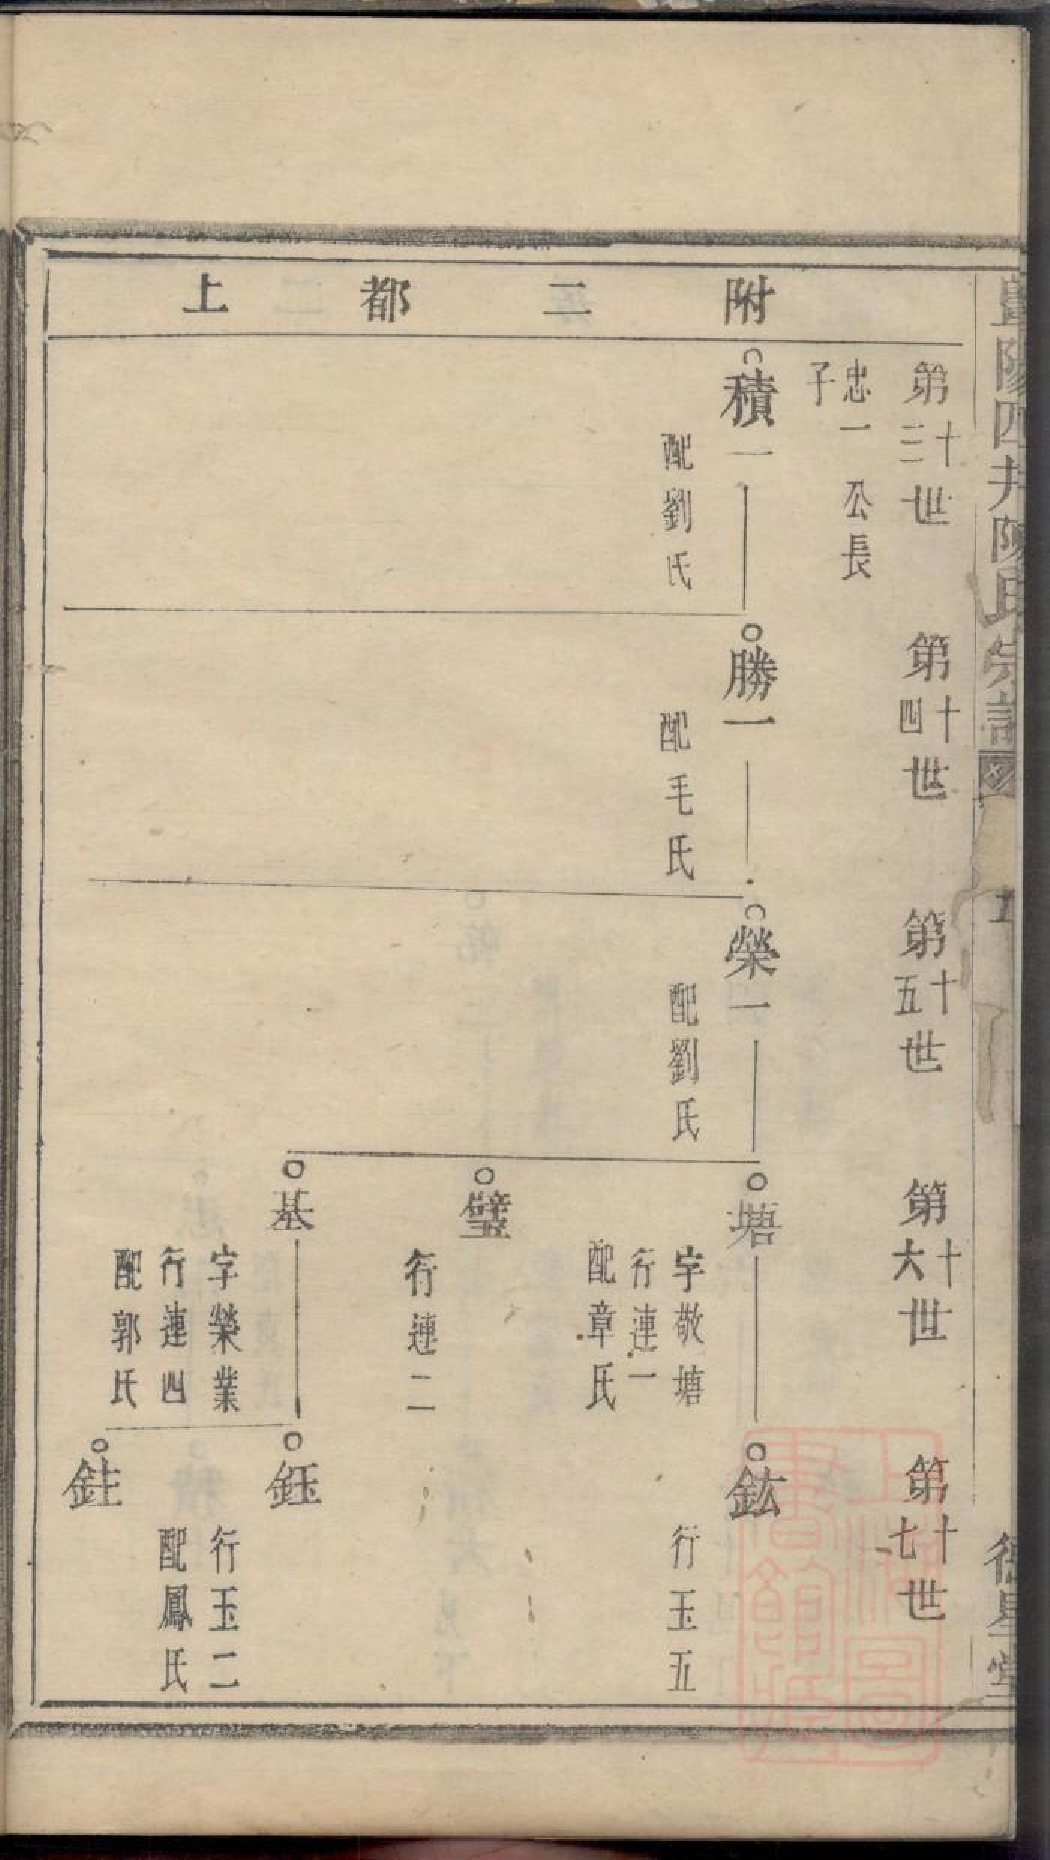 暨陽四井陳氏宗譜
德星堂
附二都上
第十三世
忠一公長
子
積一
配劉氏
第十四世
勝一
配毛氏
第十五世
榮一
配劉氏
第十六世
塘
字敬塘
行連一
配章氏
璧
行連二
基
字榮業
行連四
配郭氏
第十七世
鈜
行玉五
鈺
行玉二
配鳳氏
鉒